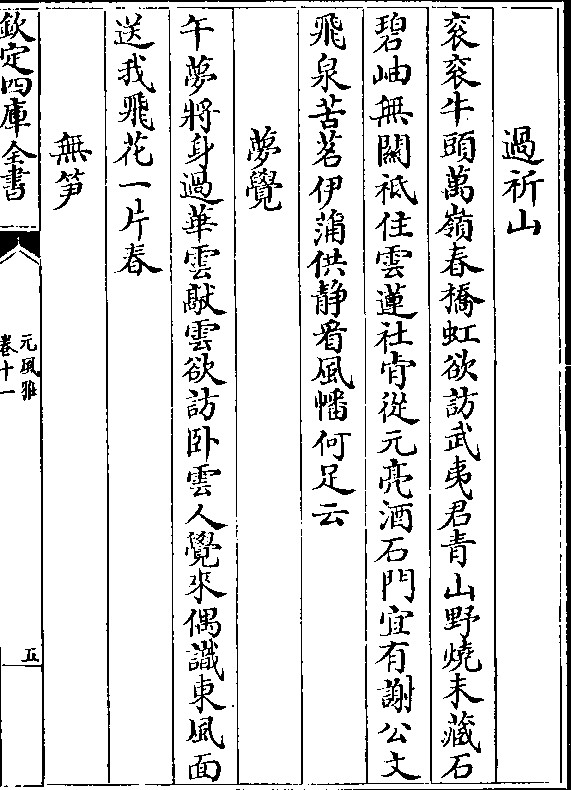 過祈山
衮衮牛頭萬嶺春橋虹欲訪武夷君青山野燒未藏石
碧岫無關袛住雲蓮社肯從元亮酒石門宜有謝公文
飛泉苦茗伊蒲供静看風幡何足云
夢覺
午夢將身過華雲献雲欲訪卧雲人覺來偶識東風面
送我飛花一片春
無筍
欽定四庫全書
元風雅
卷十一
五